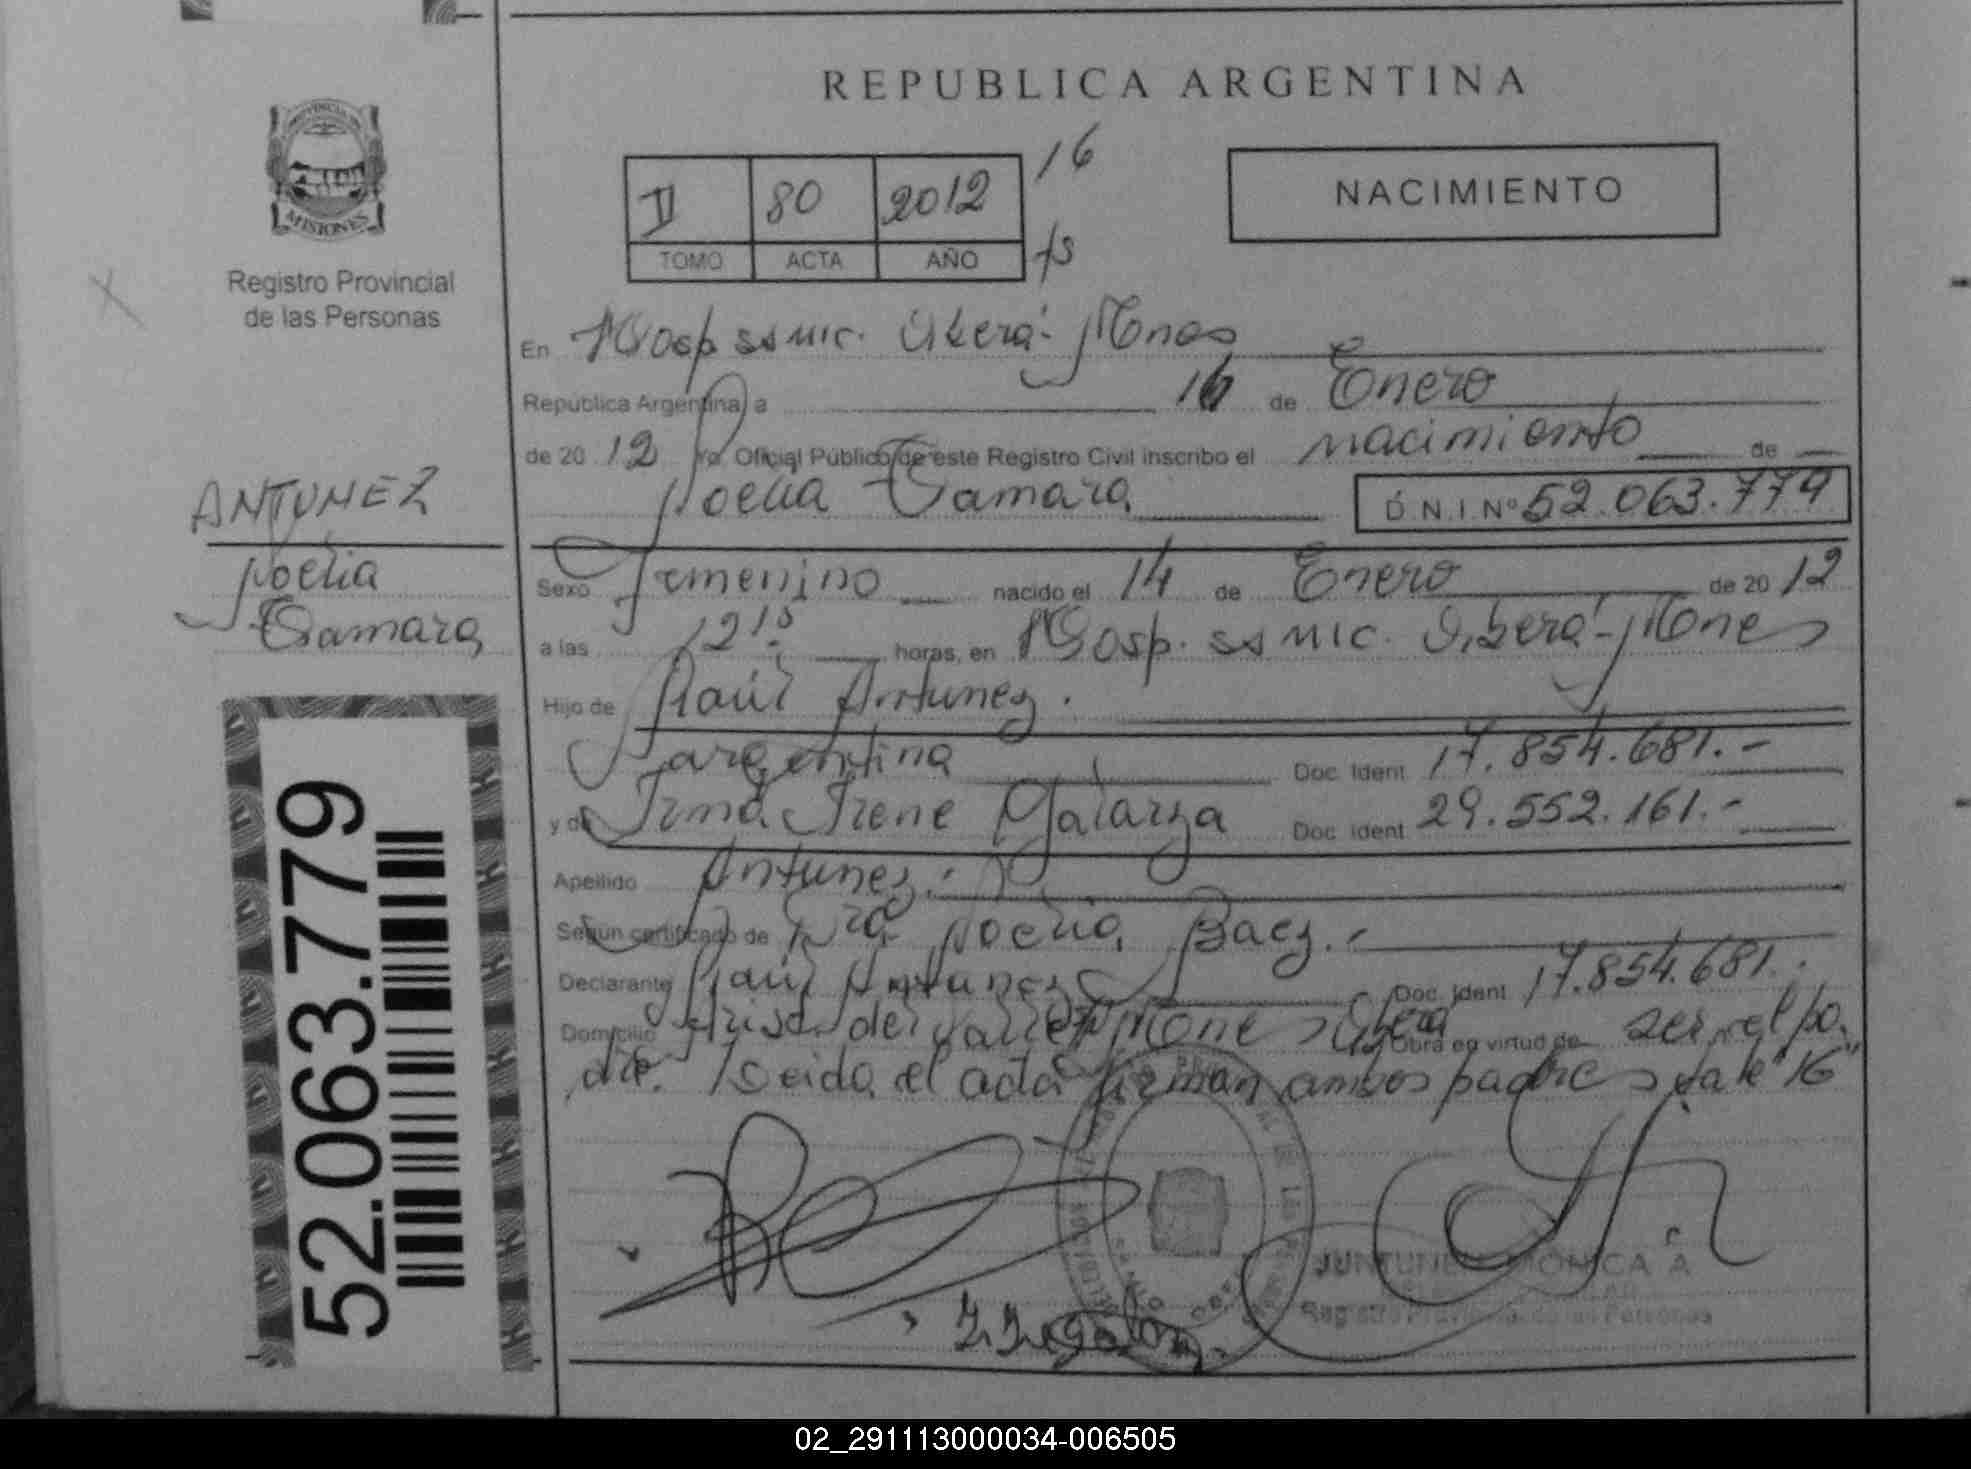 REPUBLICA ARGENTINA
PROVINCIA DE
MISIONES
Registro Provincial
de las Personas
II 80 2012 16
TOMO ACTA AÑO
NACIMIENTO
En Hosp ss mic. Oberá - Mnes
República Argentina, a 16 de Enero
de 20 12 Yo Oficial Público de este Registro Civil inscribo el nacimiento de
Noelia Tamara D.N.I. Nº 52.063.779
ANTUNEZ
Noelia
Tamara
Sexo femenino nacido el 14 de Enero de 20 12
a las 12 15 horas, en Hosp. ss mic. Oberá - Mnes
Hijo de Raúl Antunez.
argentina Doc. Ident. 17.854.681.-
y de Irma Irene Galarza Doc. Ident. 29.552.161.-
Apellido Antunez.-
Según certificado de Dra Noelia Baez.-
Declarante Raúl Antunez Doc. Ident. 17.854.681.
Domicilio Arist. del Valle Mnes Oberá Obra en virtud de ser el po.
dre. Leida el acta firman ambos padres vale "16"
JUNTUNEN MONICA A
Registro Provincial de las Personas
52.063.779
02_291113000034-006505